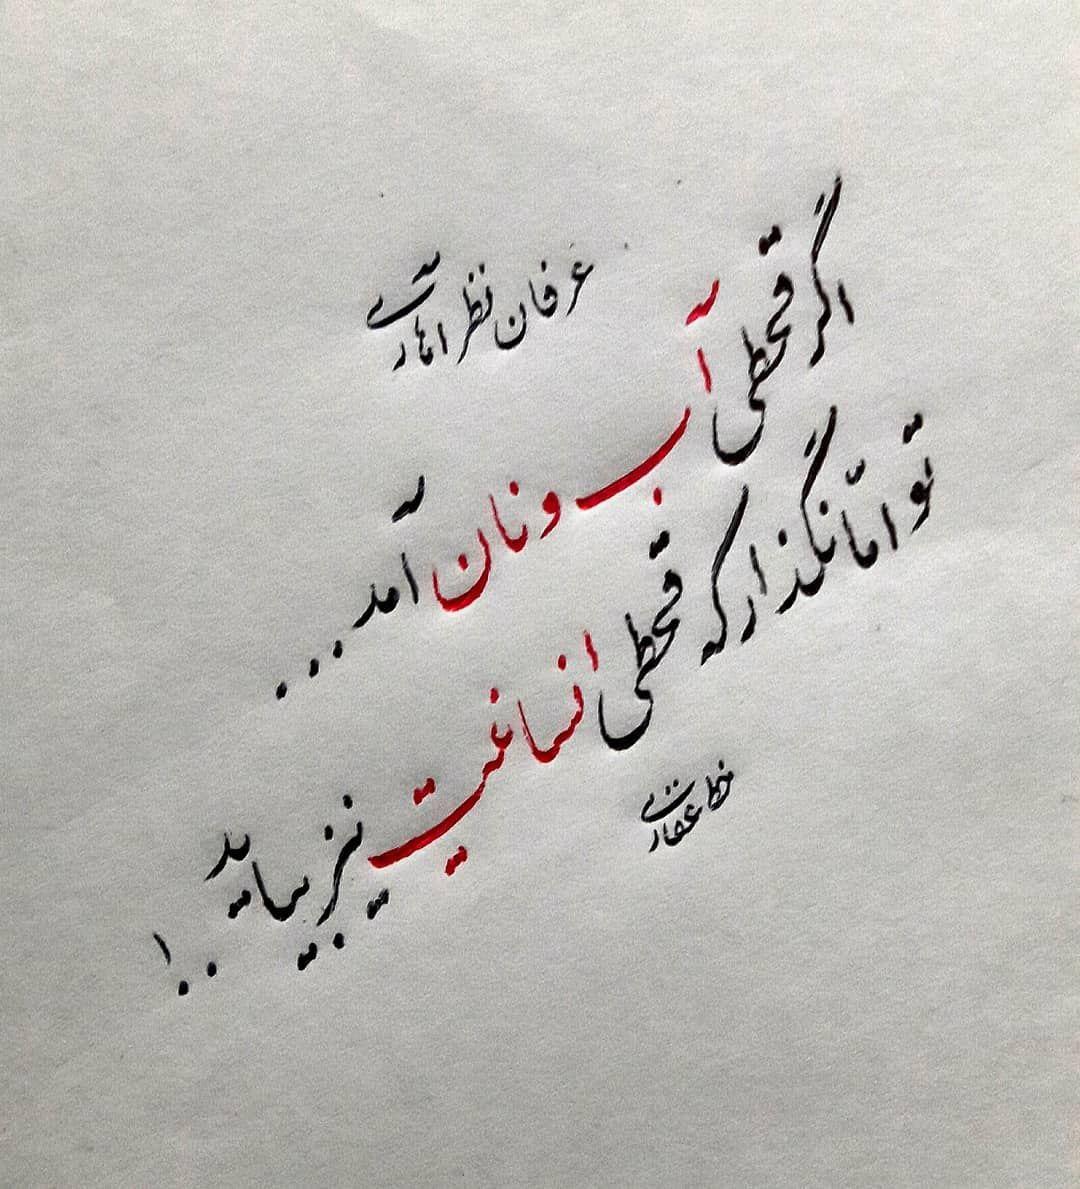 عرفان نظرآهاری
اگر قحطی آب و نان آمد...
تو امّا نگذار که قحطی انسانیت نیز بیاید..!
خط